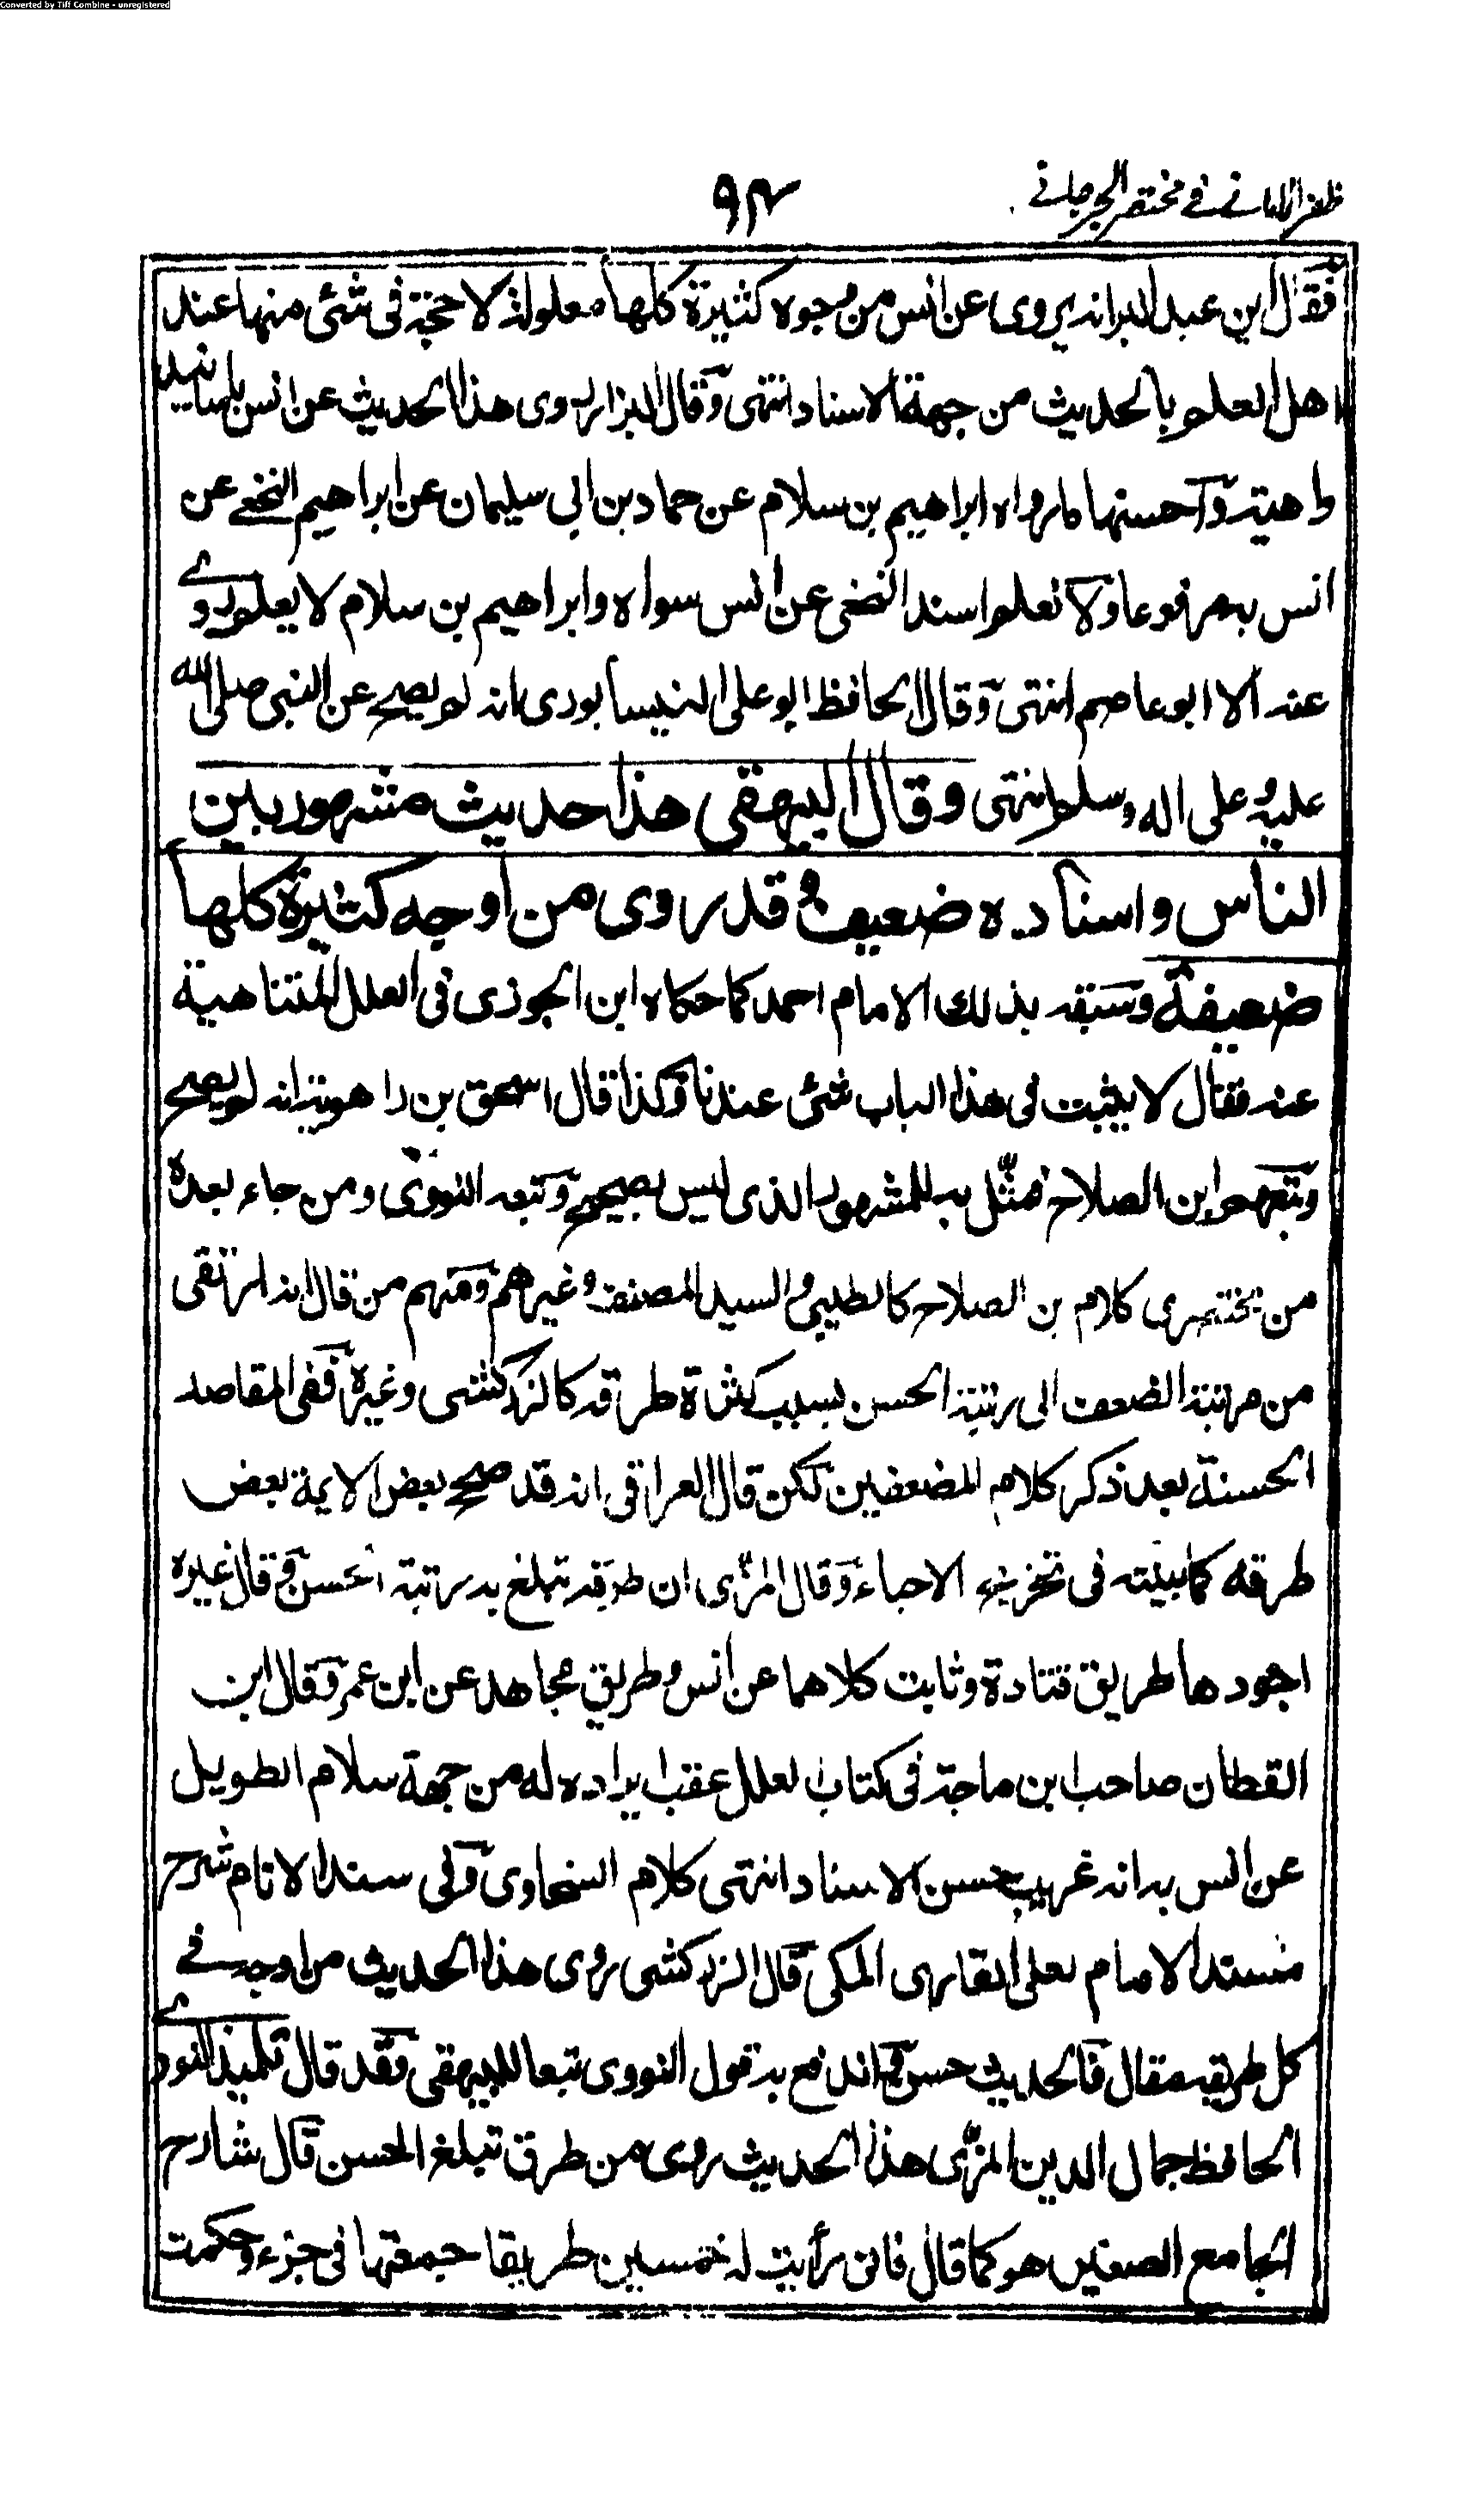 Converted by Tiff Combine - unregistered
ظفر الاماني في مختصر الجرجاني
٩٤
فقال ابن عبد البر انه يروى عن انس من وجوه كثيرة كلها معلولة لا حجة فى شئ منها عند
اهل العلم بالحديث من جهة الاسناد انتهى وقال البزار روى هذا الحديث عن انس باسانيد
واهية واحسنها ما رواه ابراهيم بن سلام عن حماد بن ابى سليمان عن ابراهيم النخعى عن
انس به مرفوعا ولا نعلم اسند النخعى عن انس سواه وابراهيم بن سلام لا يعلم روى
عنه الا ابو عاصم انتهى وقال الحافظ ابو على النيسابورى انه لم يصح عن النبى صلى الله
عليه وعلى اله وسلم انتهى وقال البيهقى هذا حديث مشهور بين
الناس واسناده ضعيف وقد روى من اوجه كثيرة كلها
ضعيفة وسبقه بذلك الامام احمد كما حكاه ابن الجوزى فى العلل المتناهية
عنه فقال لا يثبت فى هذا الباب شئ عندنا وكذا قال اسحق بن راهويه انه لم يصح
وتبعهم ابن الصلاح فمثل به للمشهور الذى ليس بصحيح وتبعه النووى ومن جاء بعده
من مختصرى كلام بن الصلاح كالطيبى والسيد المصنف وغيرهم ومنهم من قال انه ارتقى
من مرتبة الضعف الى رتبة الحسن بسبب كثرة طرقه كالزركشى وغيره ففى المقاصد
الحسنة بعد ذكر كلام المضعفين لكن قال العراقى انه قد صحح بعض الايمة بعض
طرقه كما بينته فى تخريج الاحياء وقال المزى ان طرقه تبلغ به رتبة الحسن وقال غيره
اجودها طريق قتادة وثابت كلاهما عن انس وطريق مجاهد عن ابن عمر وقال ابن
القطان صاحب ابن ماجة فى كتاب العلل عقب ايراده له من جهة سلام الطويل
عن انس به انه غريب حسن الاسناد انتهى كلام السخاوى وفى سند الانام شرح
مسند الامام لعلى القارى المكى قال الزركشى روى هذا الحديث من اوجه فى
كل طريقه مقال فالحديث حسن فاندفع به قول النووى تبعا للبيهقى فقد قال تلميذ النووى
الحافظ جمال الدين المزى هذا الحديث روى من طرق تبلغ الحسن قال شارح
الجامع الصغير هو كما قال فانى رأيت له خمسين طريقا جمعتها فى جزء وحكمت